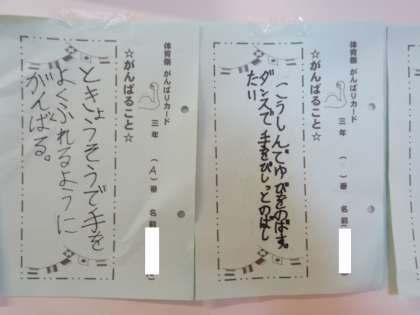 体育祭 がんばりカード
三年 (A)番 名前
☆がんばること☆
ときょうそうで手を
よくふれるように
がんばる。
体育祭 がんばりカード
三年 ( )番 名前
☆がんばること☆
こうしんでゆびをのばす。
ダンスで手をぴしっとのばし
たい